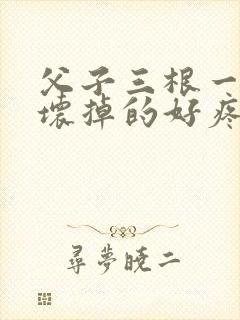 父子三根一
壞掉的好疼
尋夢曉二